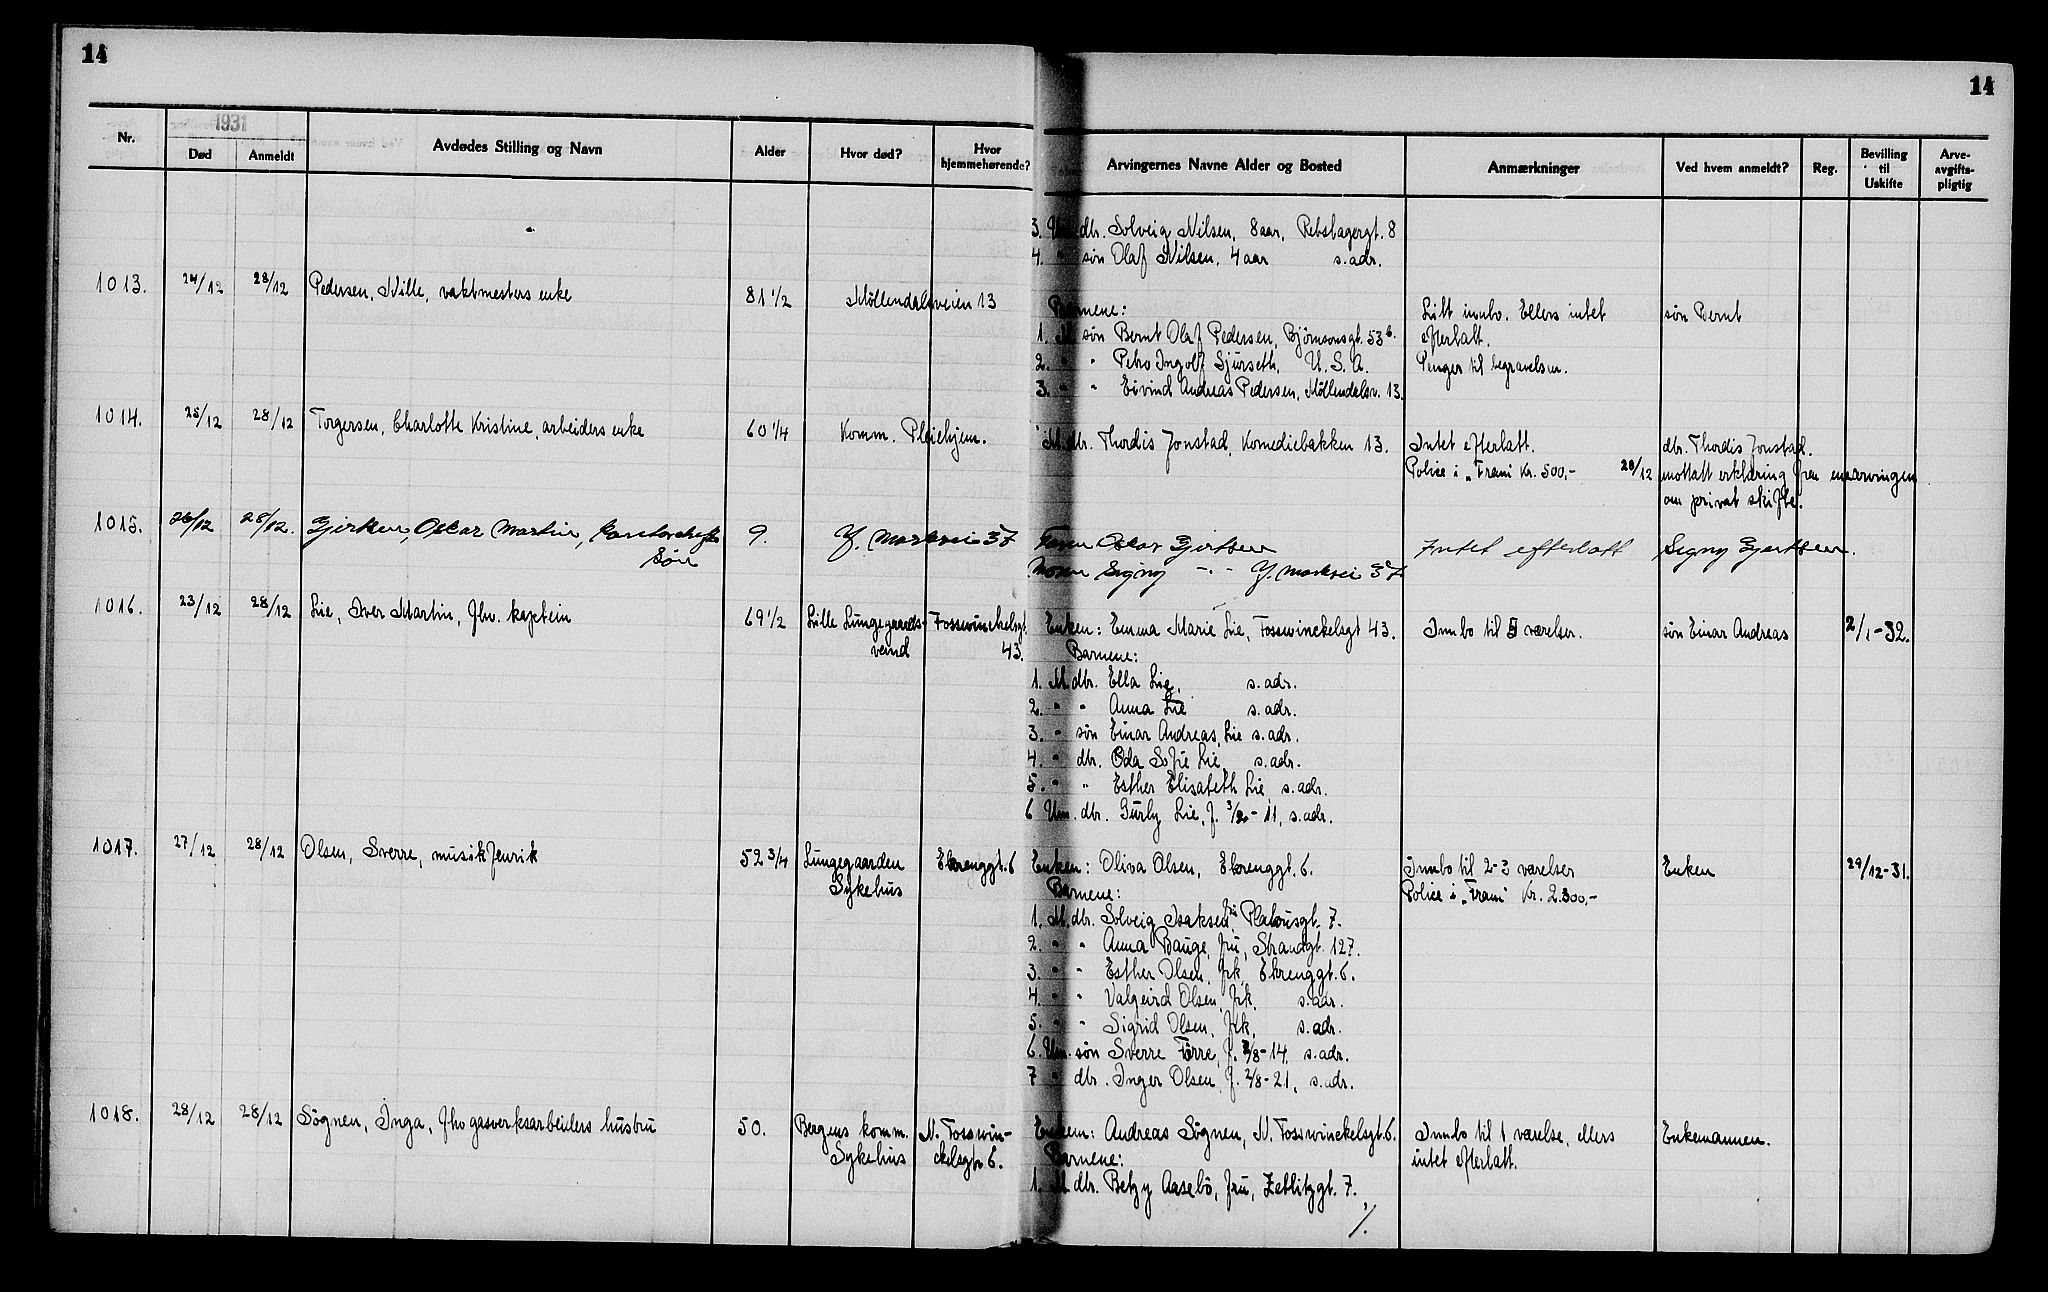 14
14
1931
Nr. Død Anmeldt Avdødes Stilling og Navn Alder Hvor død? Hvor hjemmehørende? Arvingernes Navne Alder og Bosted Anmærkninger Ved hvem anmeldt? Reg. Bevilling til Uskifte Arve-avgifts-pligtig
3. Um. dbr. Solveig Nilsen, 8 aar, Rebslagergt. 8
4. " søn Olaf Nilsen, 4 aar s. adr.
1013. 24/12 28/12 Pedersen, Nille, vaktmesters enke 81 1/2 Møllendalsveien 13
Barnene: Litt innbo. Ellers intet søn Bernt
1. M søn Bernt Olaf Pedersen, Bjørnsonsgt. 53 b. efterlatt.
2. " " Petro Ingolf Sjurseth, U.S.A. Penger til begravelsen.
3. " " Eivind Andreas Pedersen, Møllendalsv. 13.
1014. 25/12 28/12 Torgersen, Charlotte Kristine, arbeiders enke 60 1/4 Komm. Pleiehjem. M. dbr. Thordis Jonstad, Komediebakken 13. Intet efterlatt. dbr. Thordis Jonstad.
Police i "Fram" Kr. 500,- 28/12 mottatt erklæring fra enearvingen
om privat skifte.
1015. 26/12 28/12. Oscar Martin, 9. Y. Markvei 37 Oscar Gjertsen Intet efterlatt Signy Gjertsen.
Søn Moren Signy -"- Y. Markvei 37
1016. 23/12 28/12 Lie, Iver Martin, fhv. kaptein 69 1/2 Lille Lungegaards- Fosswinckelsgt. Enken: Emma Marie Lie, Fosswinckelsgt 43. Innbo til 5 værelser. søn Einar Andreas 2/1-32.
43. Barnene:
1. M dbr. Ella Lie, s. adr.
2. " " Anna Lie s. adr.
3. " søn Einar Andreas Lie s. adr.
4. " dbr. Oda Sofie Lie, s. adr.
5. " " Esther Elisabeth Lie s. adr.
6 Um. dbr. Gurly Lie, f. 3/2-11, s. adr.
1017. 27/12 28/12 Olsen, Sverre, musikfenrik 52 3/4 Lungegaarden Ekrenggt. 6 Enken: Oliva Olsen, Ekrenggt. 6. Innbo til 2-3 værelser Enken 29/12-31.
Sykehus Barnene: Police i "Fram" Kr. 2.300,-
1. M. dbr. Solveig Isaksen, fru, Platousgt. 7.
2. " " Anna Bauge, fru, Strandgt. 127.
3. " " Esther Olsen, frk, Ekrenggt. 6.
4. " " Olsen, frk, s. adr.
5. " " Sigrid Olsen, frk, s. adr.
6. Um. søn Sverre f. /8-14, s. adr.
7 " dbr. Inger Olsen f. 2/8-21, s. adr.
1018. 28/12 28/12 Søgnen, Inga, fhv gasverksarbeiders hustru 50. Bergens komm. N. Fosswin- Enkem: Andreas Søgnen, N. Fosswinckelsgt. 6. Innbo til 1 værelse, ellers Enkemannen.
Sykehus ckelsgt 6. Barnene: intet efterlatt.
1. M dbr. Betzy Aasebø, fru, Zetlitzgt. 7.
%